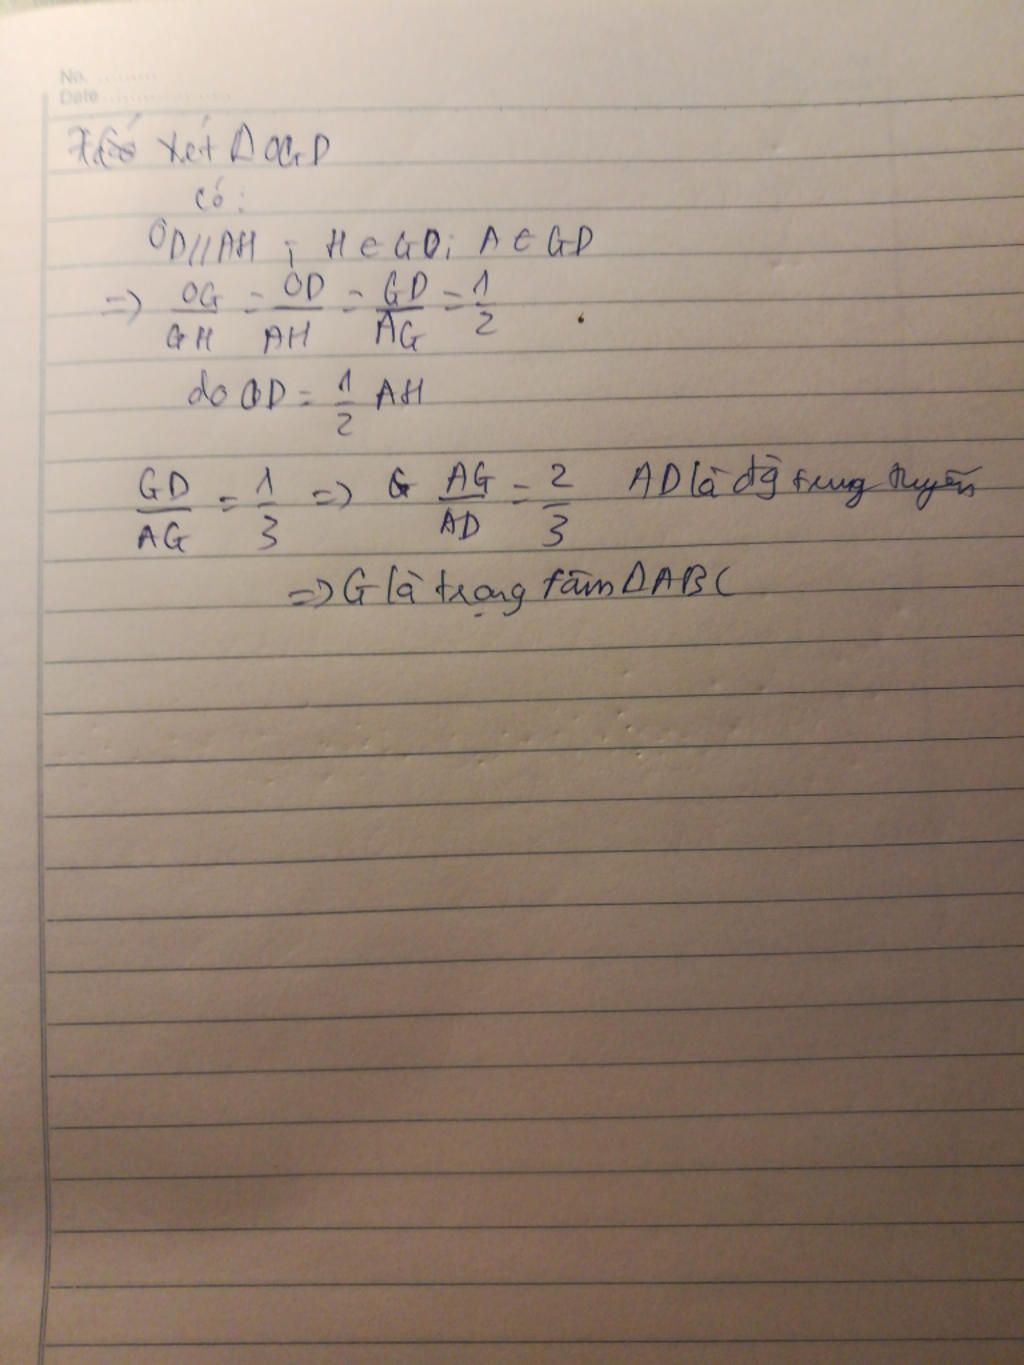 No. ..........
Date ....................
Xét Δ OGD
có:
OD//AH ; H ∈ GO; A ∈ GD
=> OG/GH = OD/AH = GD/AG = 1/2
do OD = 1/2 AH
GD/AG = 1/3 => G AG/AD = 2/3 AD là đg trung tuyến
=> G là trọng tâm ΔABC